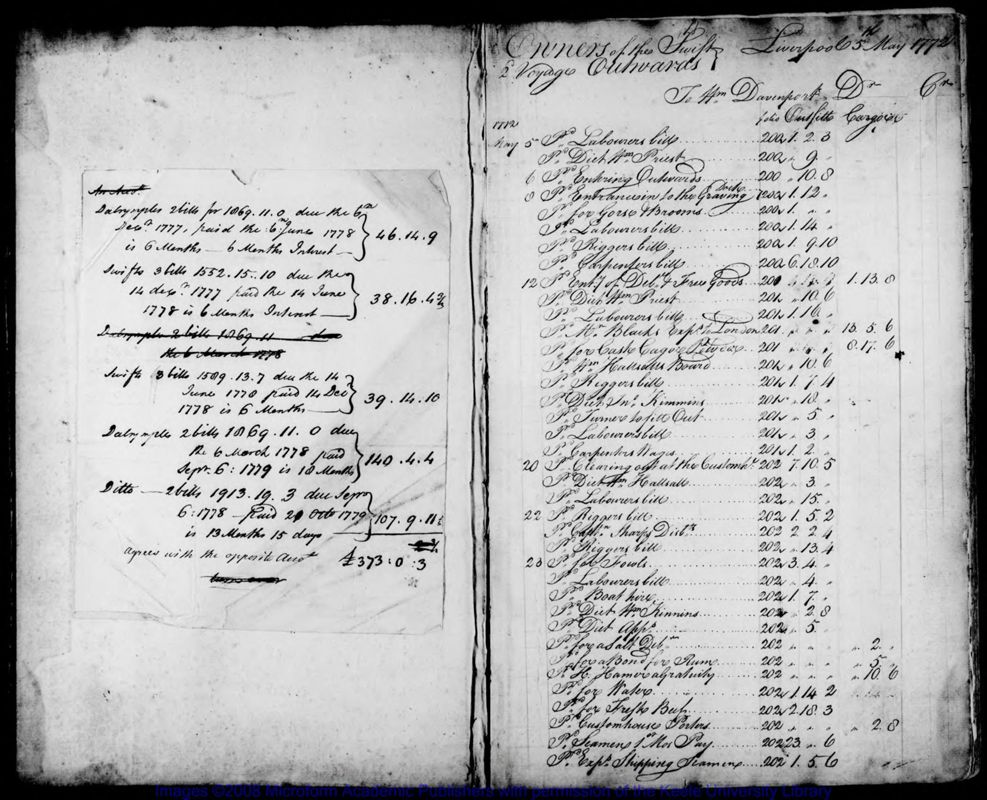 An Acct
Dalrymples 2 bills for 1869.11.0 due the 6th
Decr 1777, paid the 6th June 1778
is 6 Months — 6 Months Interest — 46.14.9
Swifts 3 bills 1552.15.10 due the
14 decr 1777 paid the 14 June
1778 is 6 Months Interest — 38.16.4½
Dalrymples 2 bills 1869.11
the 6 March 1778
Swifts 3 bills 1589.13.7 due the 14
June 1778 paid 14 Decr
1778 is 6 Months — 39.14.10
Dalrymples 2 bills 1869.11.0 due
the 6 March 1778 paid
Sepr. 6: 1779 is 18 Months 140.4.4
Ditto — 2 bills 1913.19.3 due Sepr
6: 1778 — paid 21 Octo 1779 107.9.11½
is 13 Months 15 days
Agrees with the opposit Acct £373:0:3
turn over
Owners of the Swift Liverpool 5th May 1772
2d Voyage Outwards
To Wm Davenport Dr Cr
folio Outfitt Cargoe
1772
May 5 Pd Labourers bill 200 1. 2. 3
Pd Diet Wm Priest 200 " 9. "
6 Pd Entering Outwards 200 " 10. 8
8 Pd Entrance into the Graving Dock 200 1. 12. "
Pd for Gorse & Brooms 200 1. " "
Pd Labourers bill 200 1. 14. "
Pd Riggers bill 200 1. 9. 10
Pd Carpenters bill 200 6. 18. 10
12 Pd Entry of Debre & Free Goods 200 " " " 1. 13. 8
Pd Diet Wm Priest 201 " 10. 6
Pd Labourers bill 201 1. 16. "
Pd Wm Blacks Exps to London 201 " " " 13. 5. 6
Pd for Cash Cargoe 201 " " " 8. 17. 6
Pd Wm Hallsalls Board 201 " 10. 6
Pd Riggers bill 201 1. 7. 4
Pd Diet Jno. Kimmins 201 " 18. "
Pd Turner to fill Out 201 " 5. "
Pd Labourers bill 201 " 3. "
Pd Carpenters Wages 201 1. 2. "
20 Pd Clearing out at the Customhe 202 7. 10. 5
Pd Diet Wm Hallsall 202 " 3. "
Pd Labourers bill 202 " 15. "
22 Pd Riggers bill 202 1. 5. 2
Pd Captn Sharps Disbts 202 2. 2. 4
Pd Riggers bill 202 " 13. 4
23 Pd for Fowls 202 3. 4. "
Pd Labourers bill 202 " 4. "
Pd Boat hire 202 1. 7. "
Pd Diet Wm Kinnins 202 " 2. 8
Pd Diet Appr 202 " 5. "
Pd for a Salt Debre 202 " " " " 2. "
Pd for a Bond for Rum 202 " " " " 5. "
Pd H. Hamer a Gratuity 202 " " " " 10. 6
Pd for Water 202 1. 14. 2
Pd for Fresh Beef 202 2. 18. 3
Pd Customhouse Porters 202 " " " " 2. 8
Pd Seamens 1st Mos Pay 202 23. " 6
Pd Exps Shipping Seamen 202 1. 5. 6
Images ©2008 Microform Academic Publishers with permission of the Keele University Library